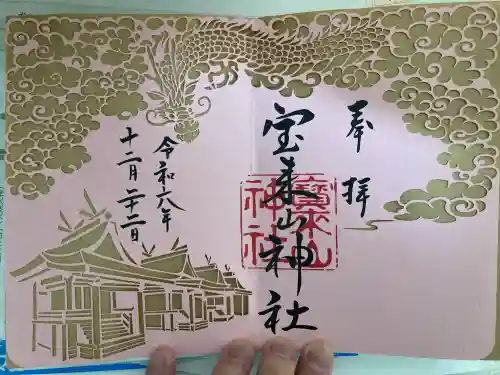 奉拝
宝来山神社
寶來山
神社
令和六年
十二月二十二日